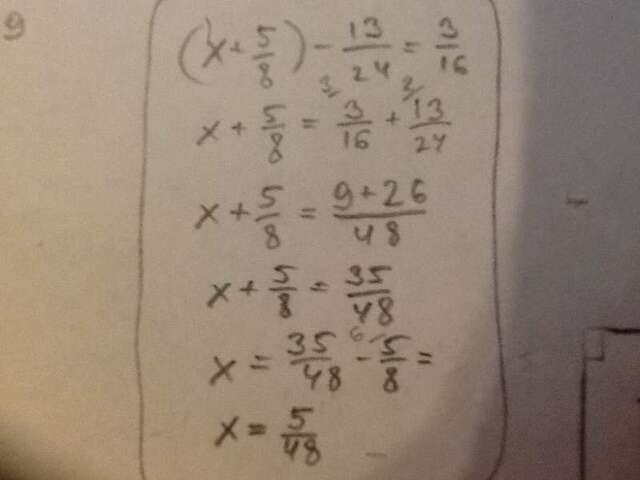 9
(x + 5/8) - 13/24 = 3/16
x + 5/8 = 3/ 3/16 + 2/ 13/24
x + 5/8 = 9+26/48
x + 5/8 = 35/48
x = 35/48 - 6/ 5/8 =
x = 5/48